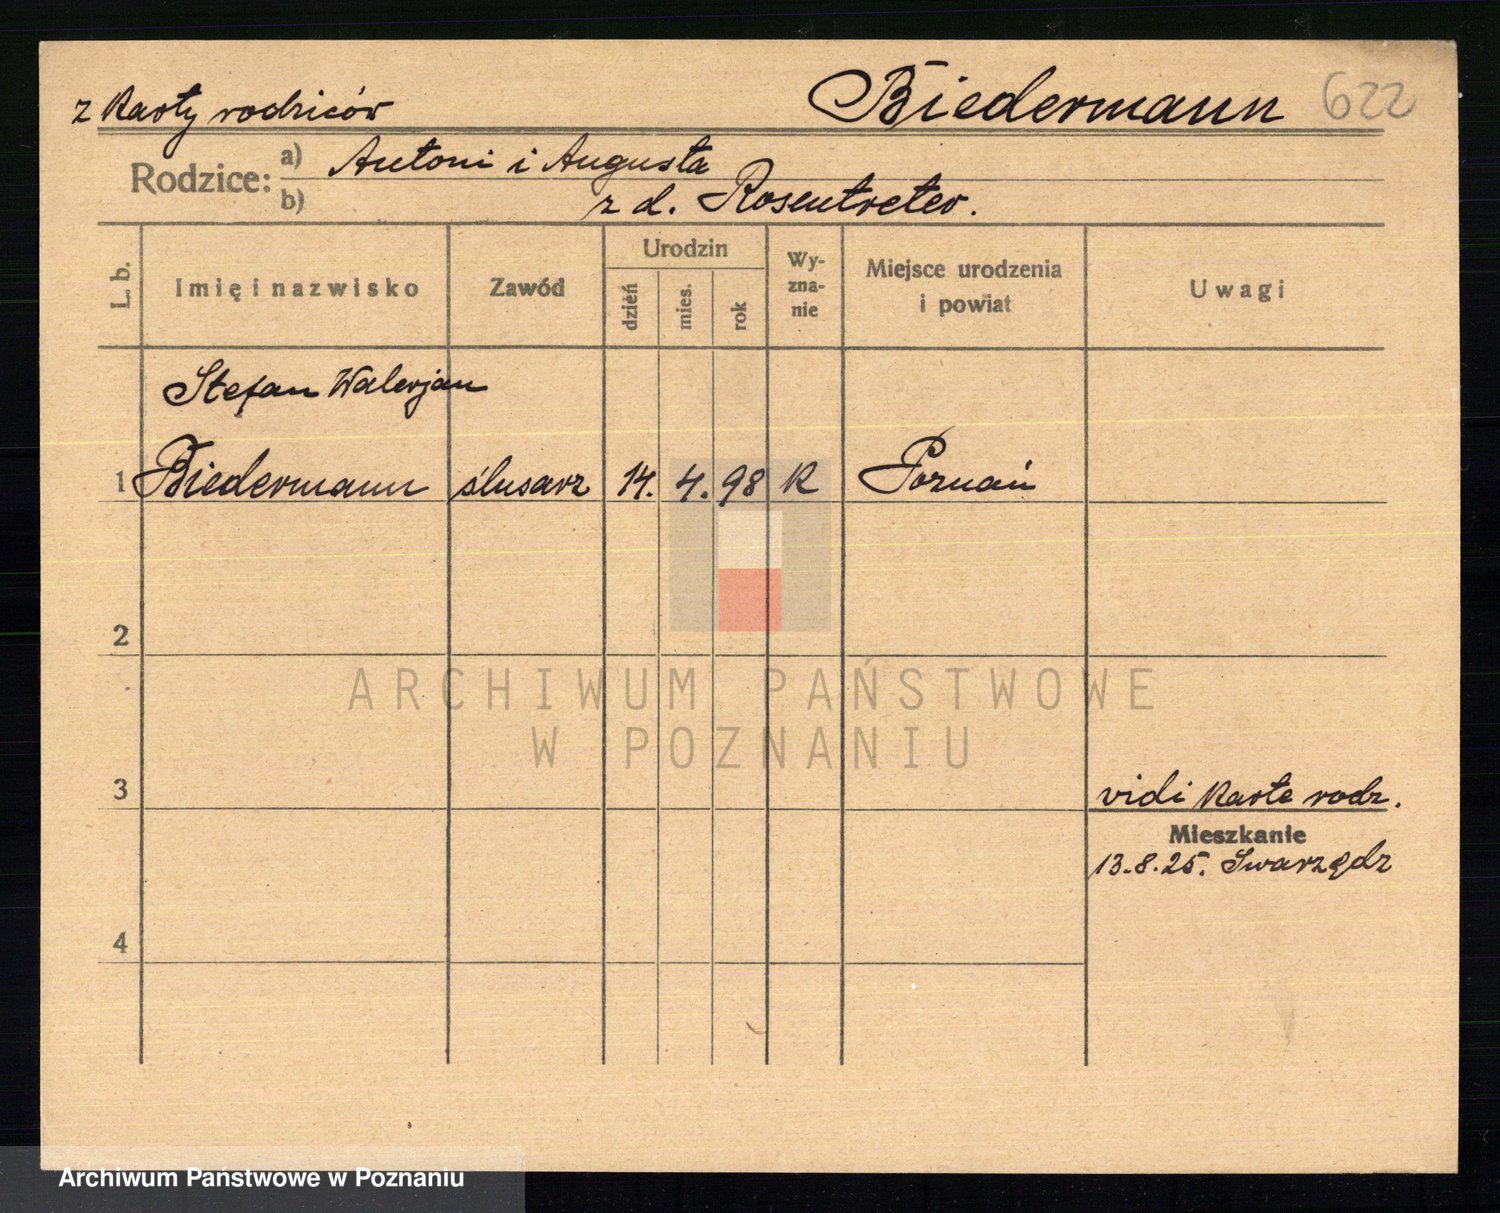 z karty rodziców
Biedermann 622
Rodzice: a) Antoni i Augusta
b) z d. Rosentreter.
L. b.
Imię i nazwisko
Zawód
Urodzin
dzień
mies.
rok
Wy-
zna-
nie
Miejsce urodzenia
i powiat
Uwagi
Stefan Walerjan
1 Biedermann ślusarz 14. 4. 98 k Poznań
2
ARCHIWUM PAŃSTWOWE
W POZNANIU
3
vidi karte rodz.
Mieszkanie
13.8.25. Swarzędz
4
Archiwum Państwowe w Poznaniu